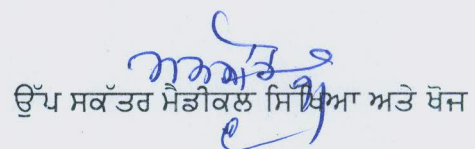 ਉੱਪ ਸਕੱਤਰ ਮੈਡੀਕਲ ਸਿੱਖਿਆ ਅਤੇ ਖੋਜ